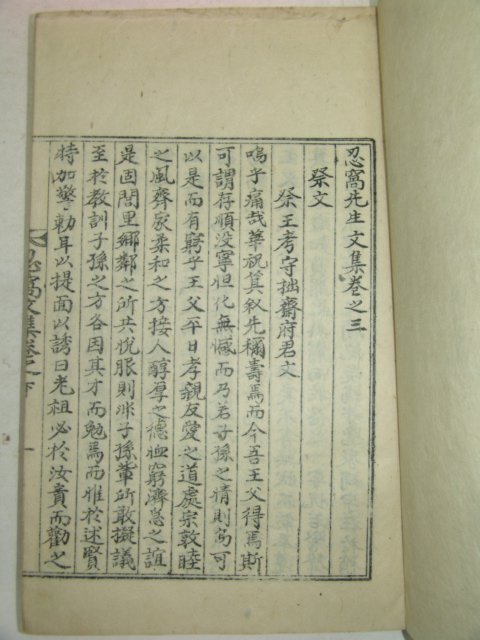 忍窩先生文集卷之三
祭文
祭王考守拙齋府君文
嗚乎痛哉華祝箕叙先稱壽焉而今吾王父得焉斯
可謂存順没寧怛化無憾而乃若子孫之情則焉可
以是而有窮乎王父平日孝親友愛之道處宗敦睦
之風齊家柔和之方接人醇厚之德恤窮濟急之誼
是固閭里鄕鄰之所共悅服則非子孫輩所敢擬議
至於教訓子孫之方各因其才而勉焉而雅於述賢
特加警勅耳以提面以誘曰光祖必於汝責而勸之
忍窩文集卷之下 一